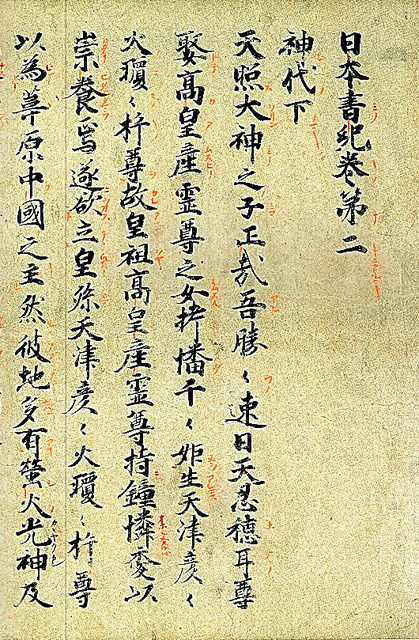 日本書紀卷第二
神代下
天照大神之子正哉吾勝〻速日天忍穗耳尊
娶髙皇産靈尊之女栲幡千〻姫生天津彦〻
火瓊〻杵尊故皇祖髙皇産靈尊持鍾憐愛以
崇養焉遂欲立皇孫天津彦〻火瓊〻杵尊
以為葦原中國之主然彼地多有螢火光神及